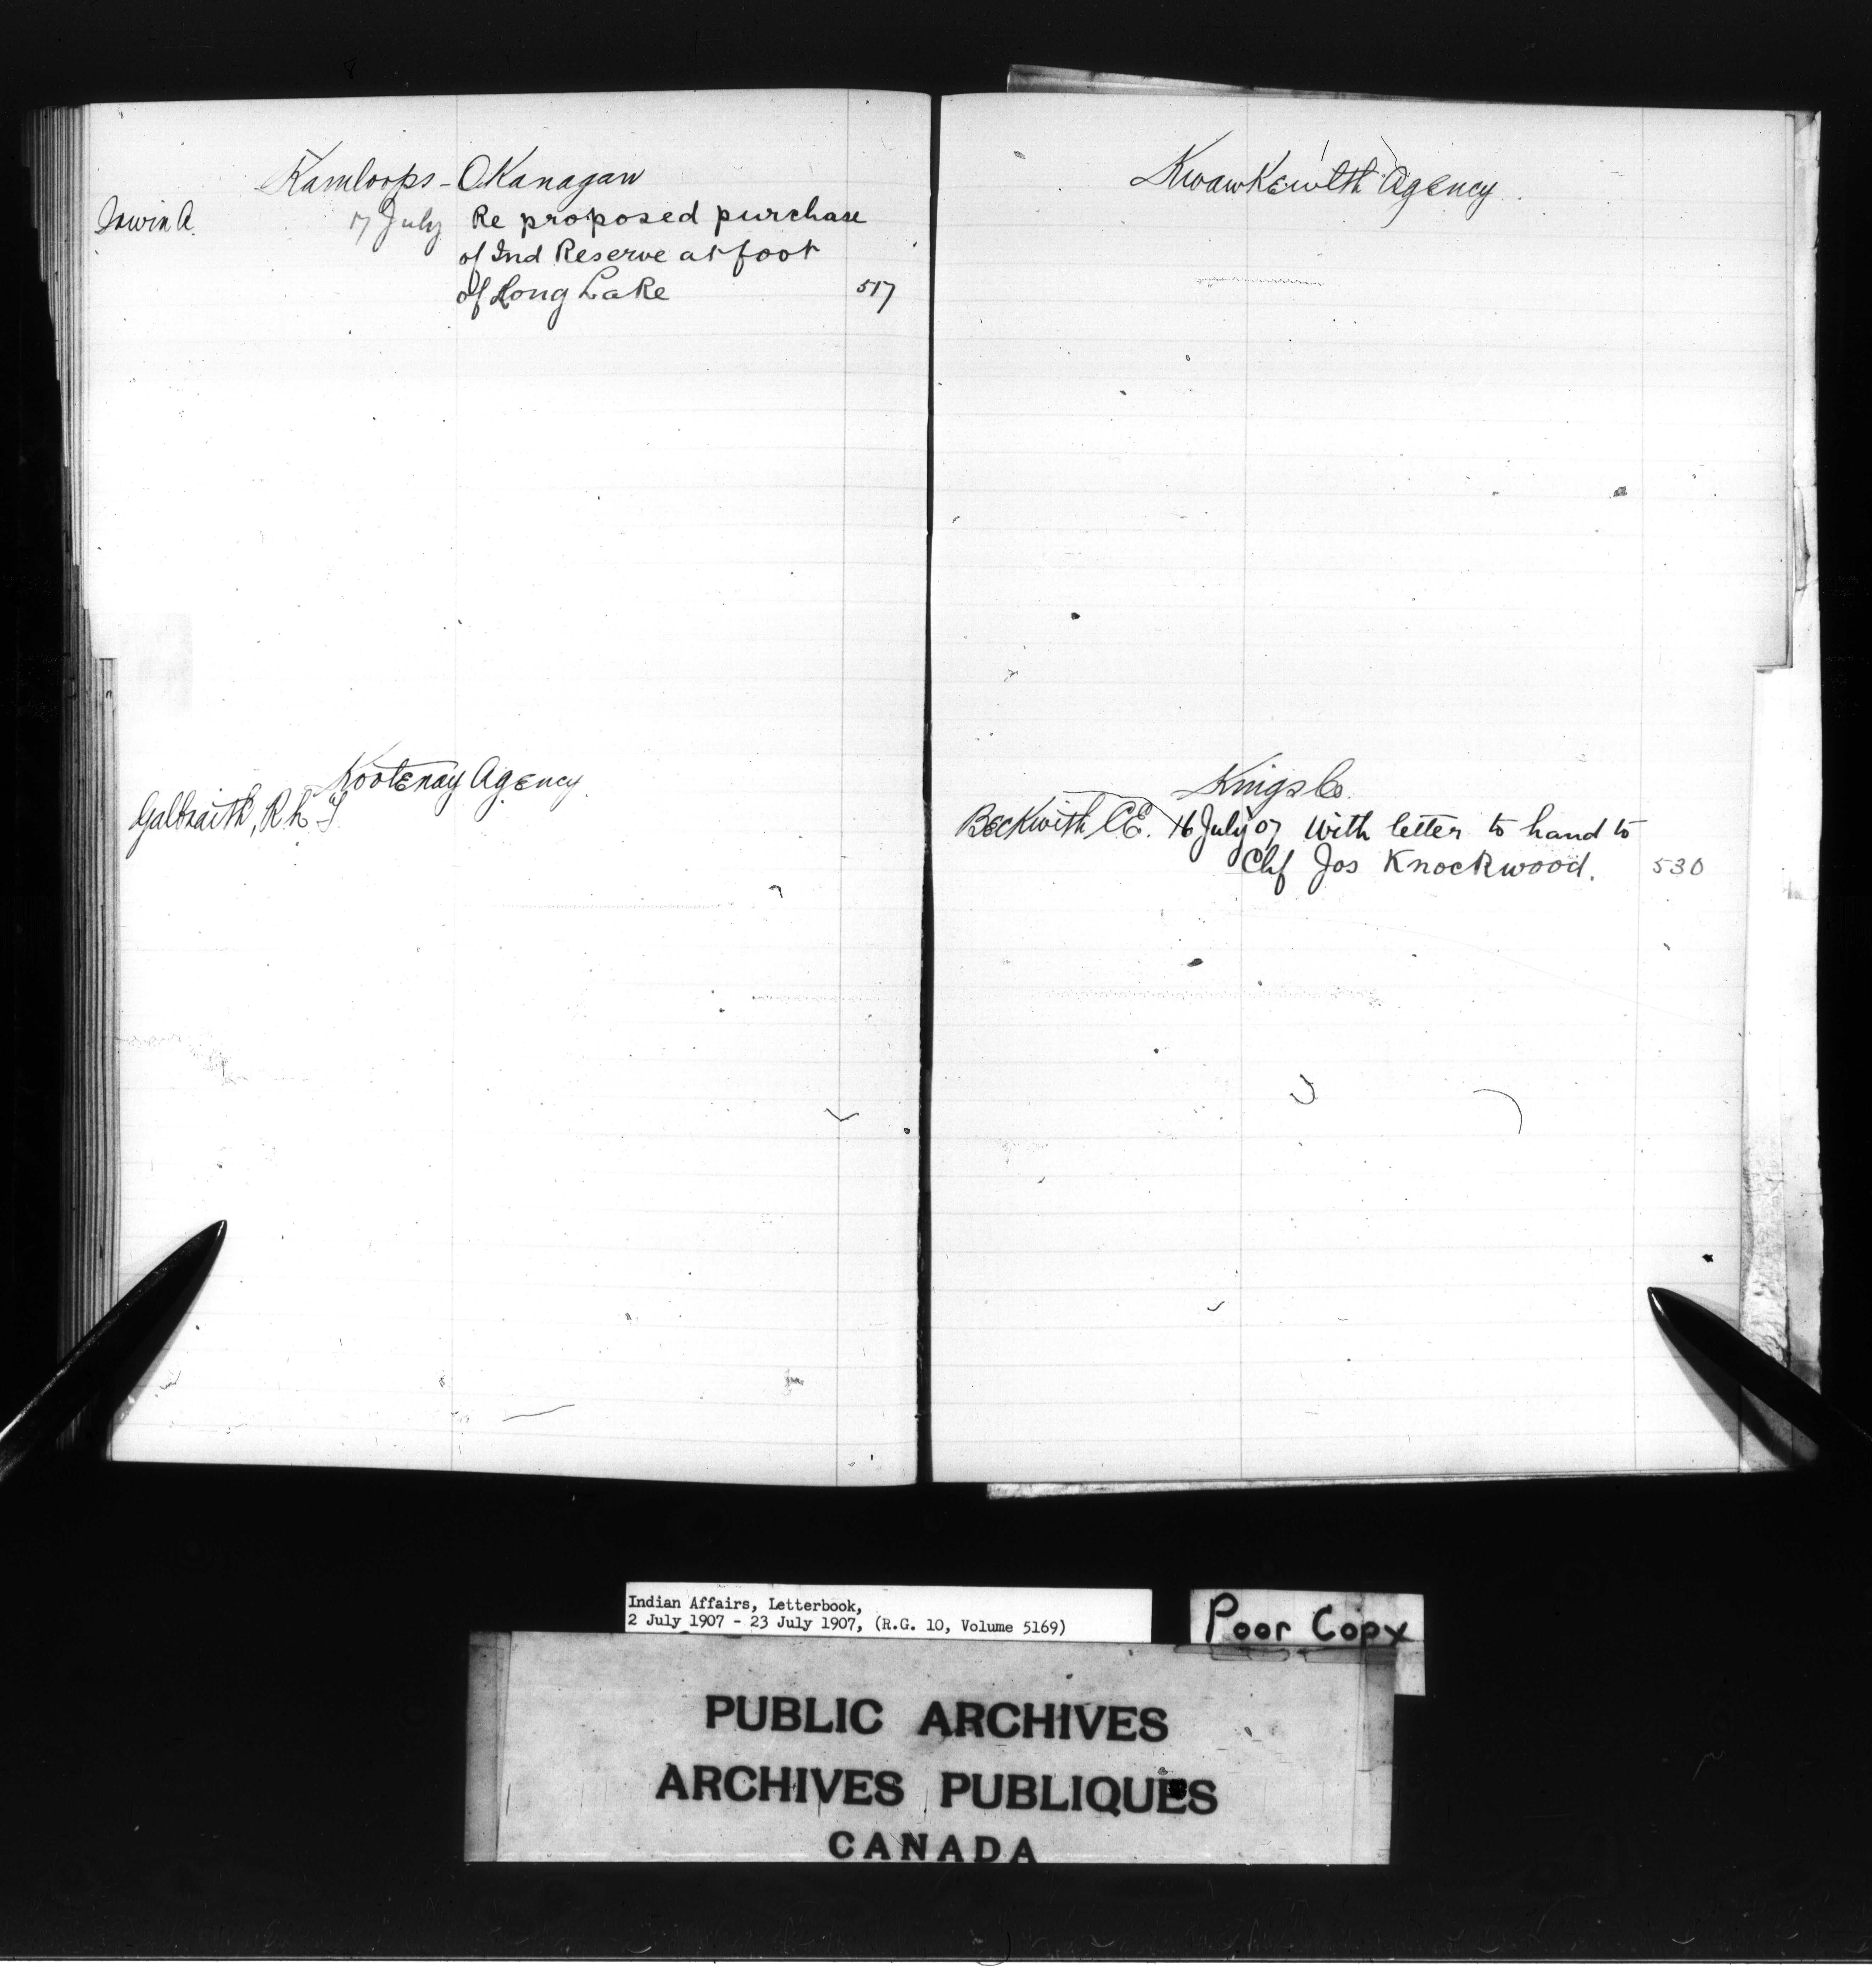 Kamloops - OKanagan
Irwin A. 17 July Re proposed purchase
of Ind Reserve at foot
of Long Lake 517
Kootenay Agency
Galbraith, R L T
KwawKewlth Agency
Kings Co.
Beckwith C E. 16 July 07 With letter to hand to
Chf Jos Knockwood. 530
Indian Affairs, Letterbook,
2 July 1907 - 23 July 1907, (R.G. 10, Volume 5169)
Poor Copy
PUBLIC ARCHIVES
ARCHIVES PUBLIQUES
CANADA